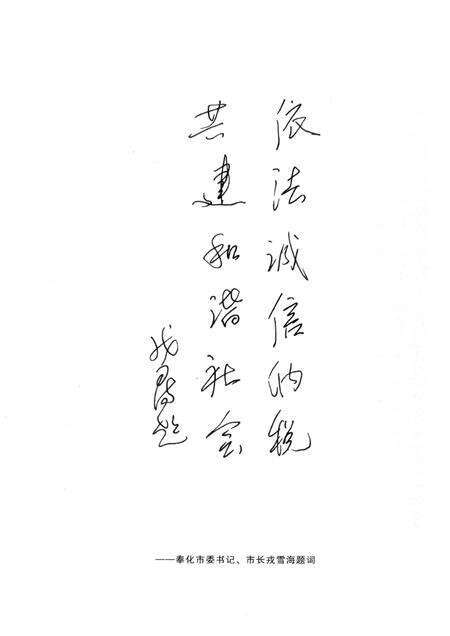 依法诚信纳税
共建和谐社会
戎雪海题
——奉化市委书记、市长戎雪海题词